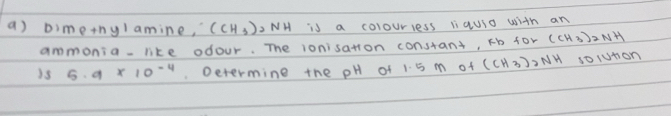 a) Dimethylamine, (CH3)2 NH is a colourless liquid with an
ammonia - like odour. The ionisation constant, Kb for (CH3)2NH
is 5.9 x 10-4. Determine the pH of 1.5 m of (CH3)2NH solution